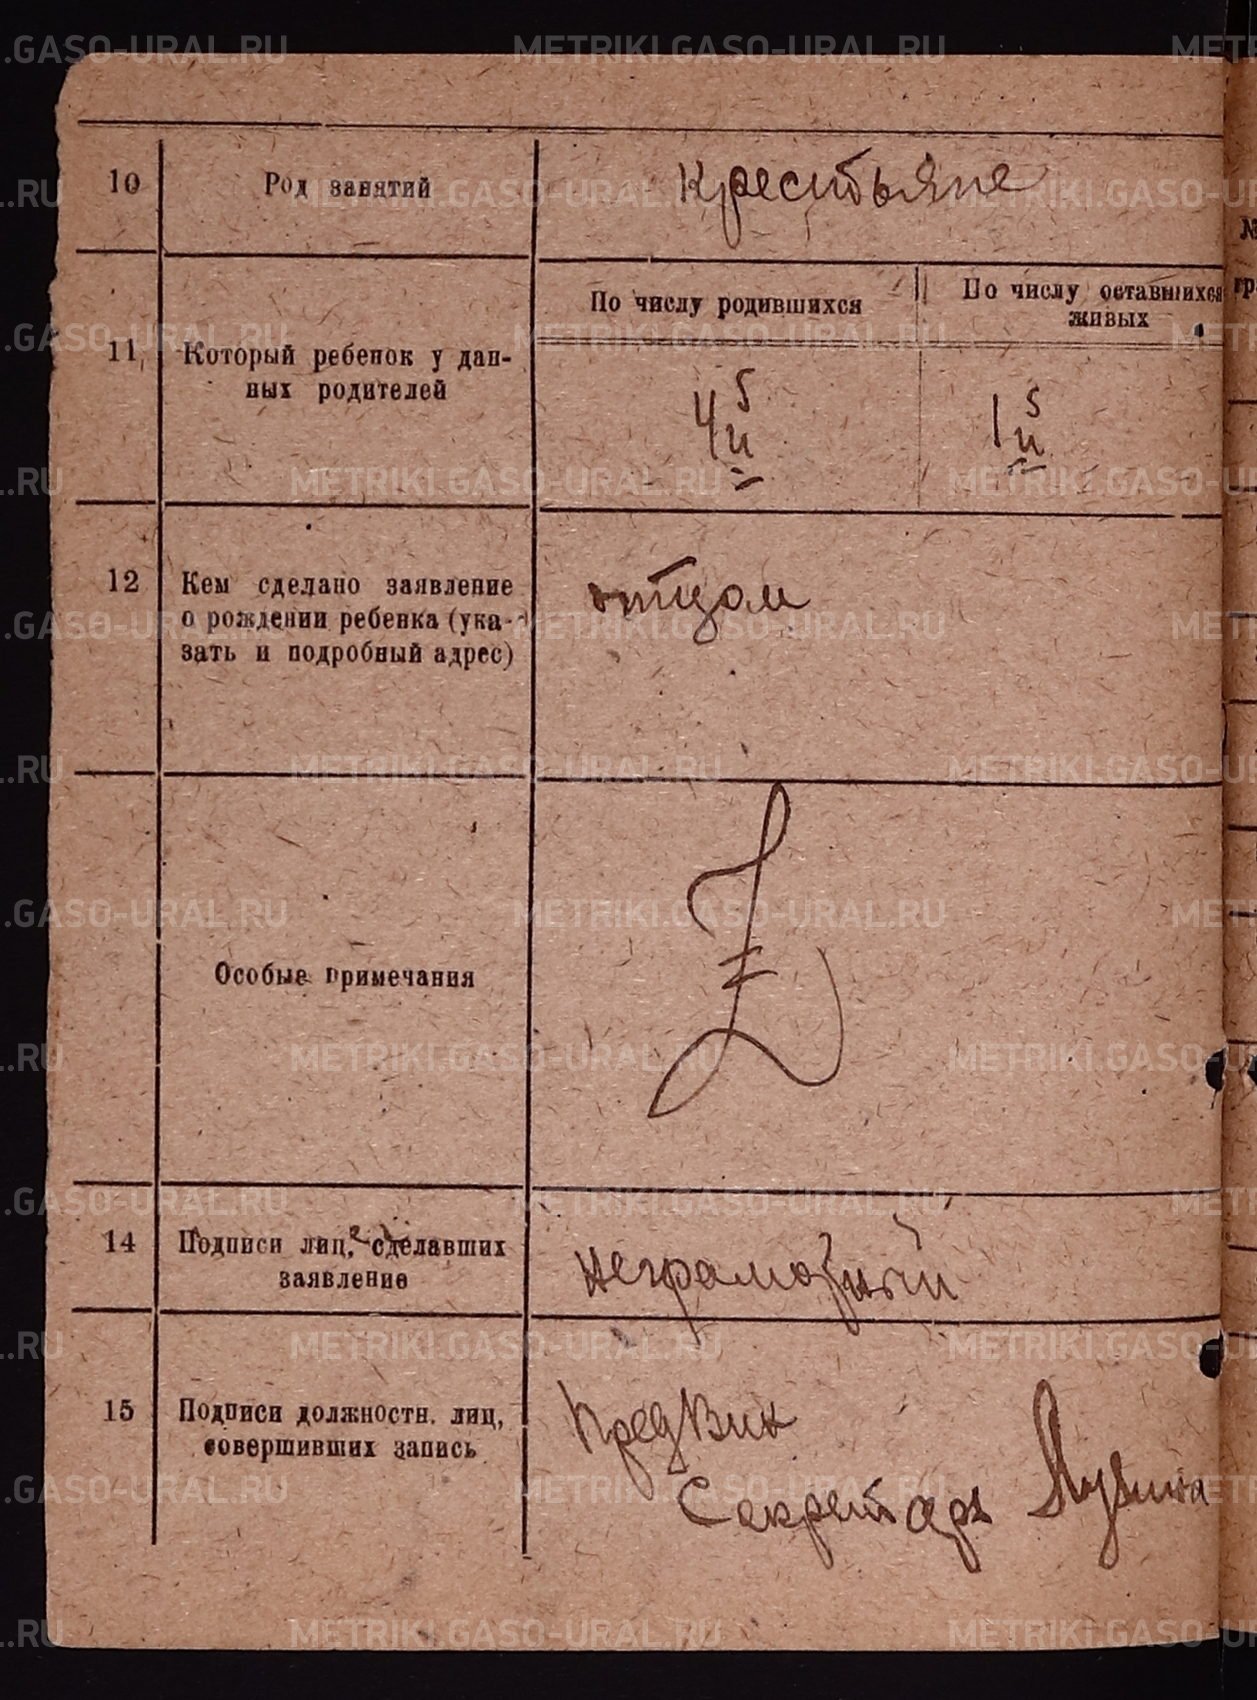 10 Род занятий Крестьяне
По числу родившихся По числу оставшихся
живых
11 Который ребенок у дан-
ных родителей
4й 1й
12 Кем сделано заявление отцом
о рождении ребенка (ука-
зать и подробный адрес)
Особые примечания
14 Подписи лиц, сделавших
заявление
неграмотный
15 Подписи должностн. лиц,
совершивших запись
ПредВик
Секретарь
METRIKI.GASO-URAL.RU